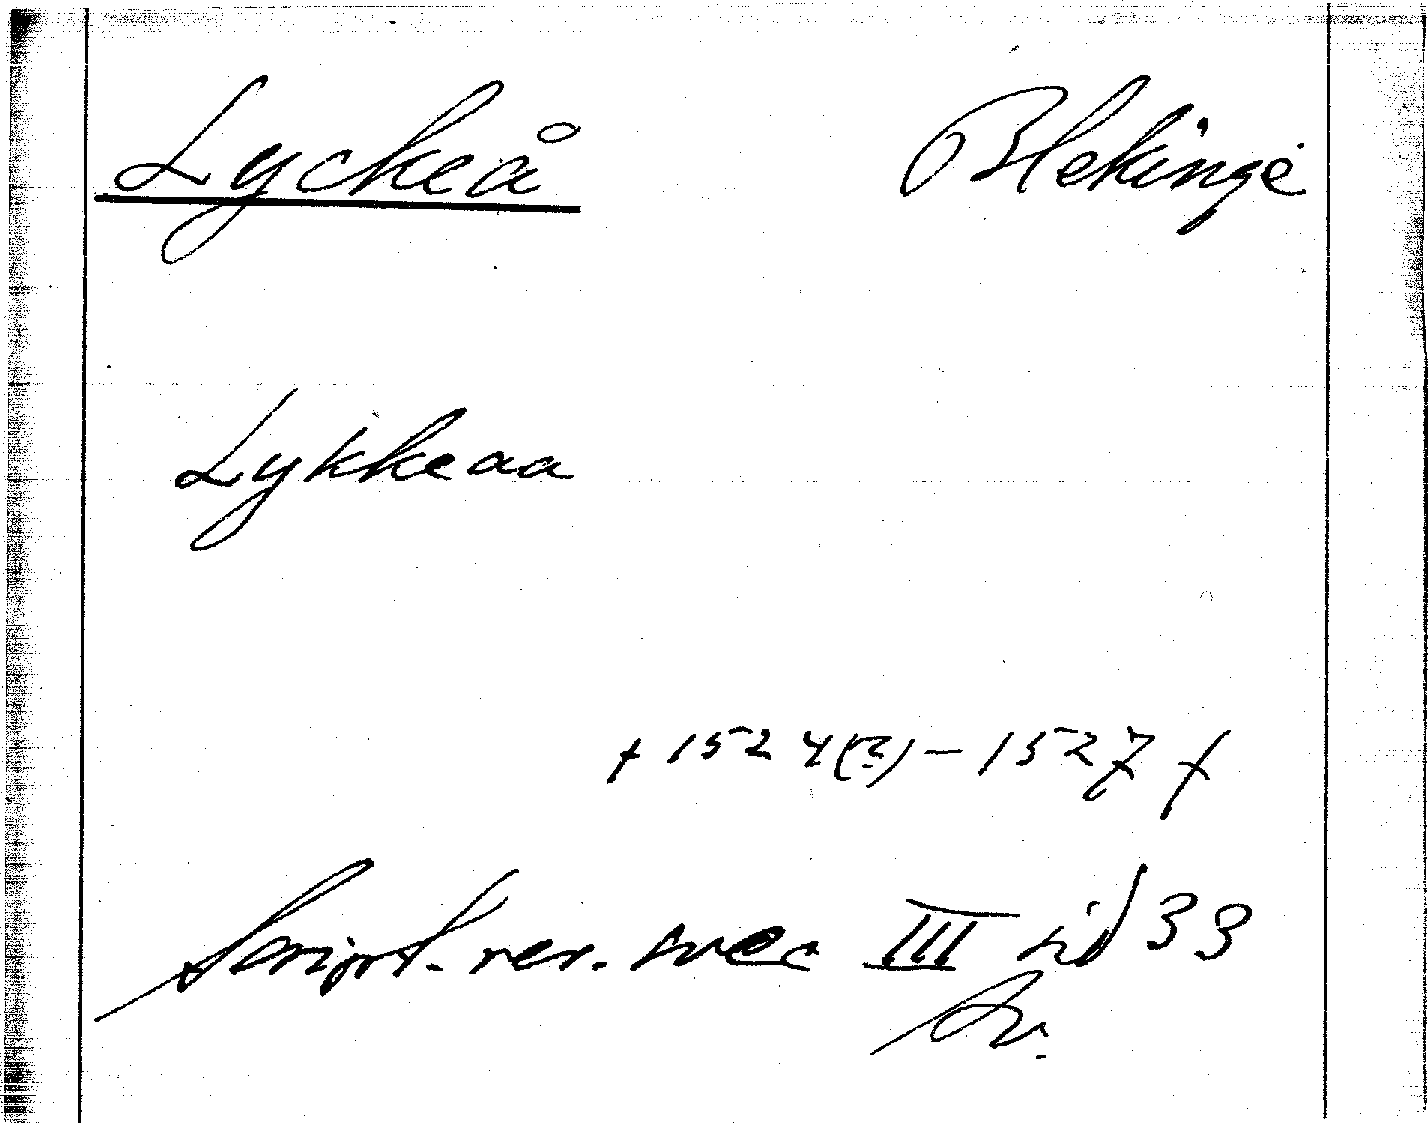 Lyckeå Blekinge
Lykkeaa
+ 1524(?) – 1527 +
Script. rer. svec III sid 33
Sv.